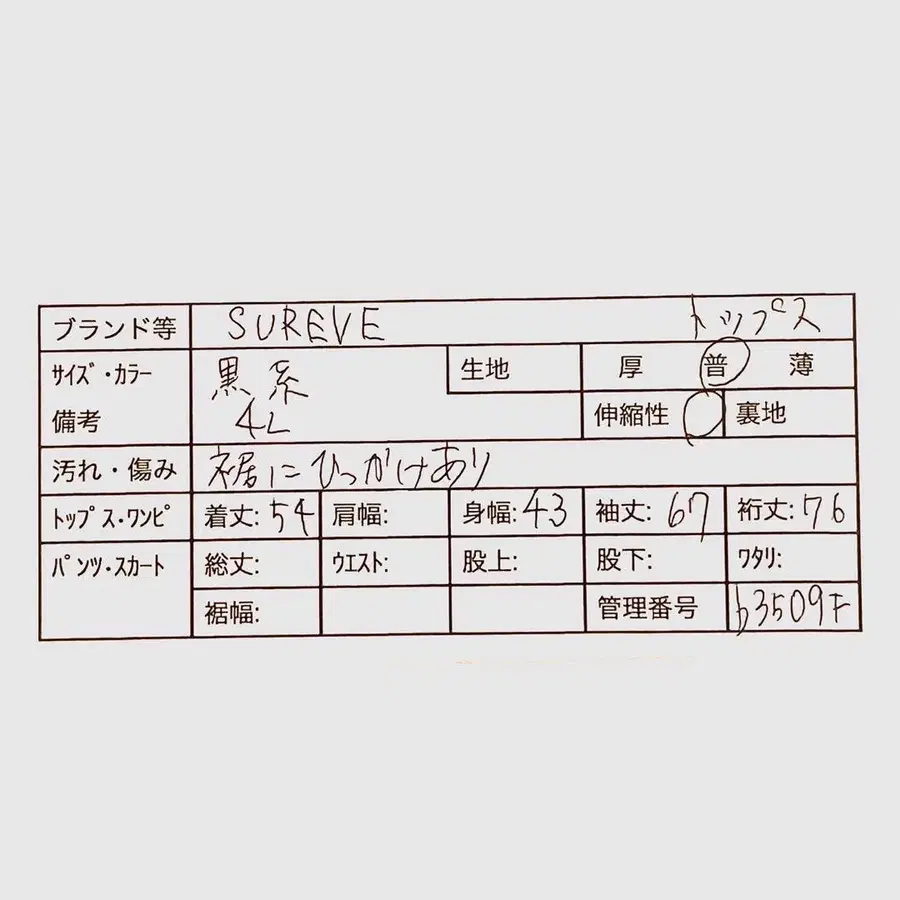 ブランド等 SUREVE トップス
サイズ・カラー 黒系 生地 厚 普 薄
備考 4L 伸縮性 裏地
汚れ・傷み 裾にひっかけあり
トップス・ワンピ 着丈: 54 肩幅: 身幅: 43 袖丈: 67 裄丈: 76
パンツ・スカート 総丈: ウエスト: 股上: 股下: ワタリ:
裾幅: 管理番号 b3509F